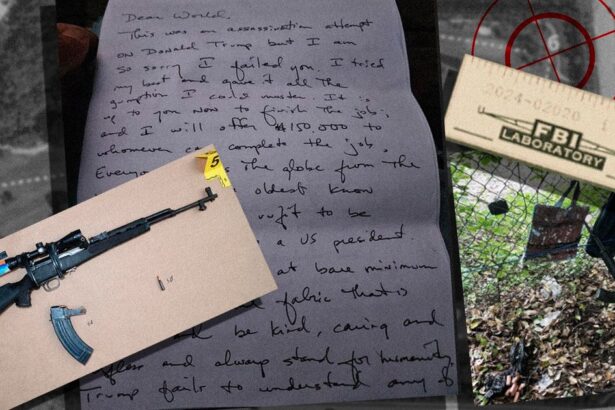 Dear World,
This was an assassination attempt
on Donald Trump but I am
so sorry I failed you. I tried
my best and gave it all the
gumption I could muster. It is
up to you now to finish the job;
and I will offer $150,000 to
whomever can complete the job.
the globe from the
oldest know
to be
a US president.
at bare minimum
fabric that is
be kind, caring and
and always stand for humanity.
Trump fails to understand any of
5
6
2024-02020
FBI
LABORATORY